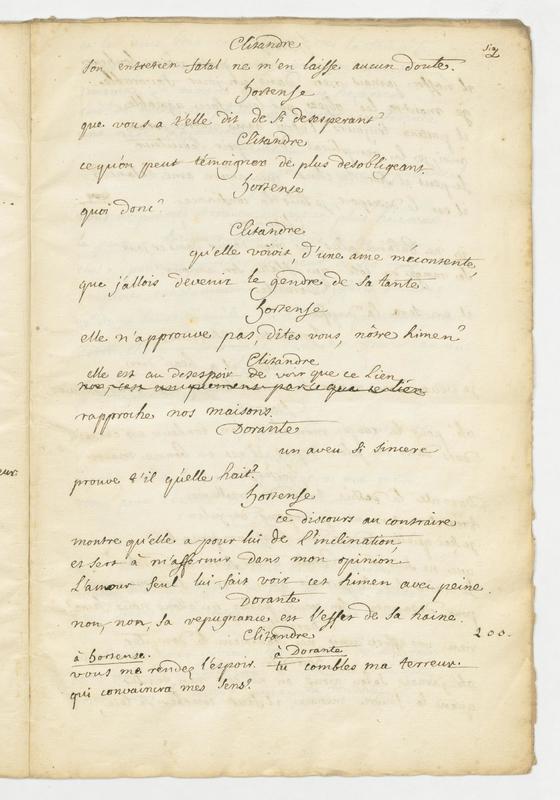 Clitandre
son entretien fatal ne m'en laisse aucun doute.
hortense
que vous a t'elle dit de si desesperant?
Clitandre
ce qu'on peut témoigner de plus desobligeant.
hortense
quoi donc?
Clitandre
qu'elle voïoit, d'une ame mécontente,
que j'allois devenir le gendre de sa tante
hortense
elle n'approuve pas, dites vous, nôtre himen?
Clitandre
elle est au desespoir de voir que ce Lien
non, c'est uniquement parce que ce lien
rapproche nos maisons.
Dorante
un aveu si sincere
prouve t'il qu'elle hait?
hortense
ce discours au contraire
montre qu'elle a pour lui de l'inclination,
et sert à m'affermir dans mon opinion,
L'amour seul lui fait voir cet himen avec peine.
Dorante
non, non, sa repugnance est l'effet de sa haine.
Clitandre
200.
à hortense. à Dorante
vous me rendez l'espoir. tu combles ma terreur.
qui convaincra mes sens?